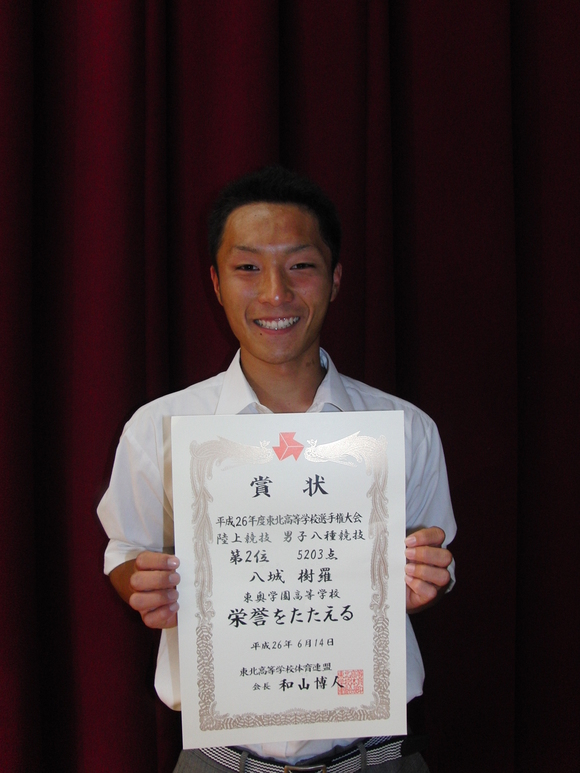 賞状
平成26年度東北高等学校選手権大会
陸上競技 男子八種競技
第2位 5203点
八城 樹羅
東奥学園高等学校
栄誉をたたえる
平成26年 6月14日
東北高等学校体育連盟
会長 和山博人